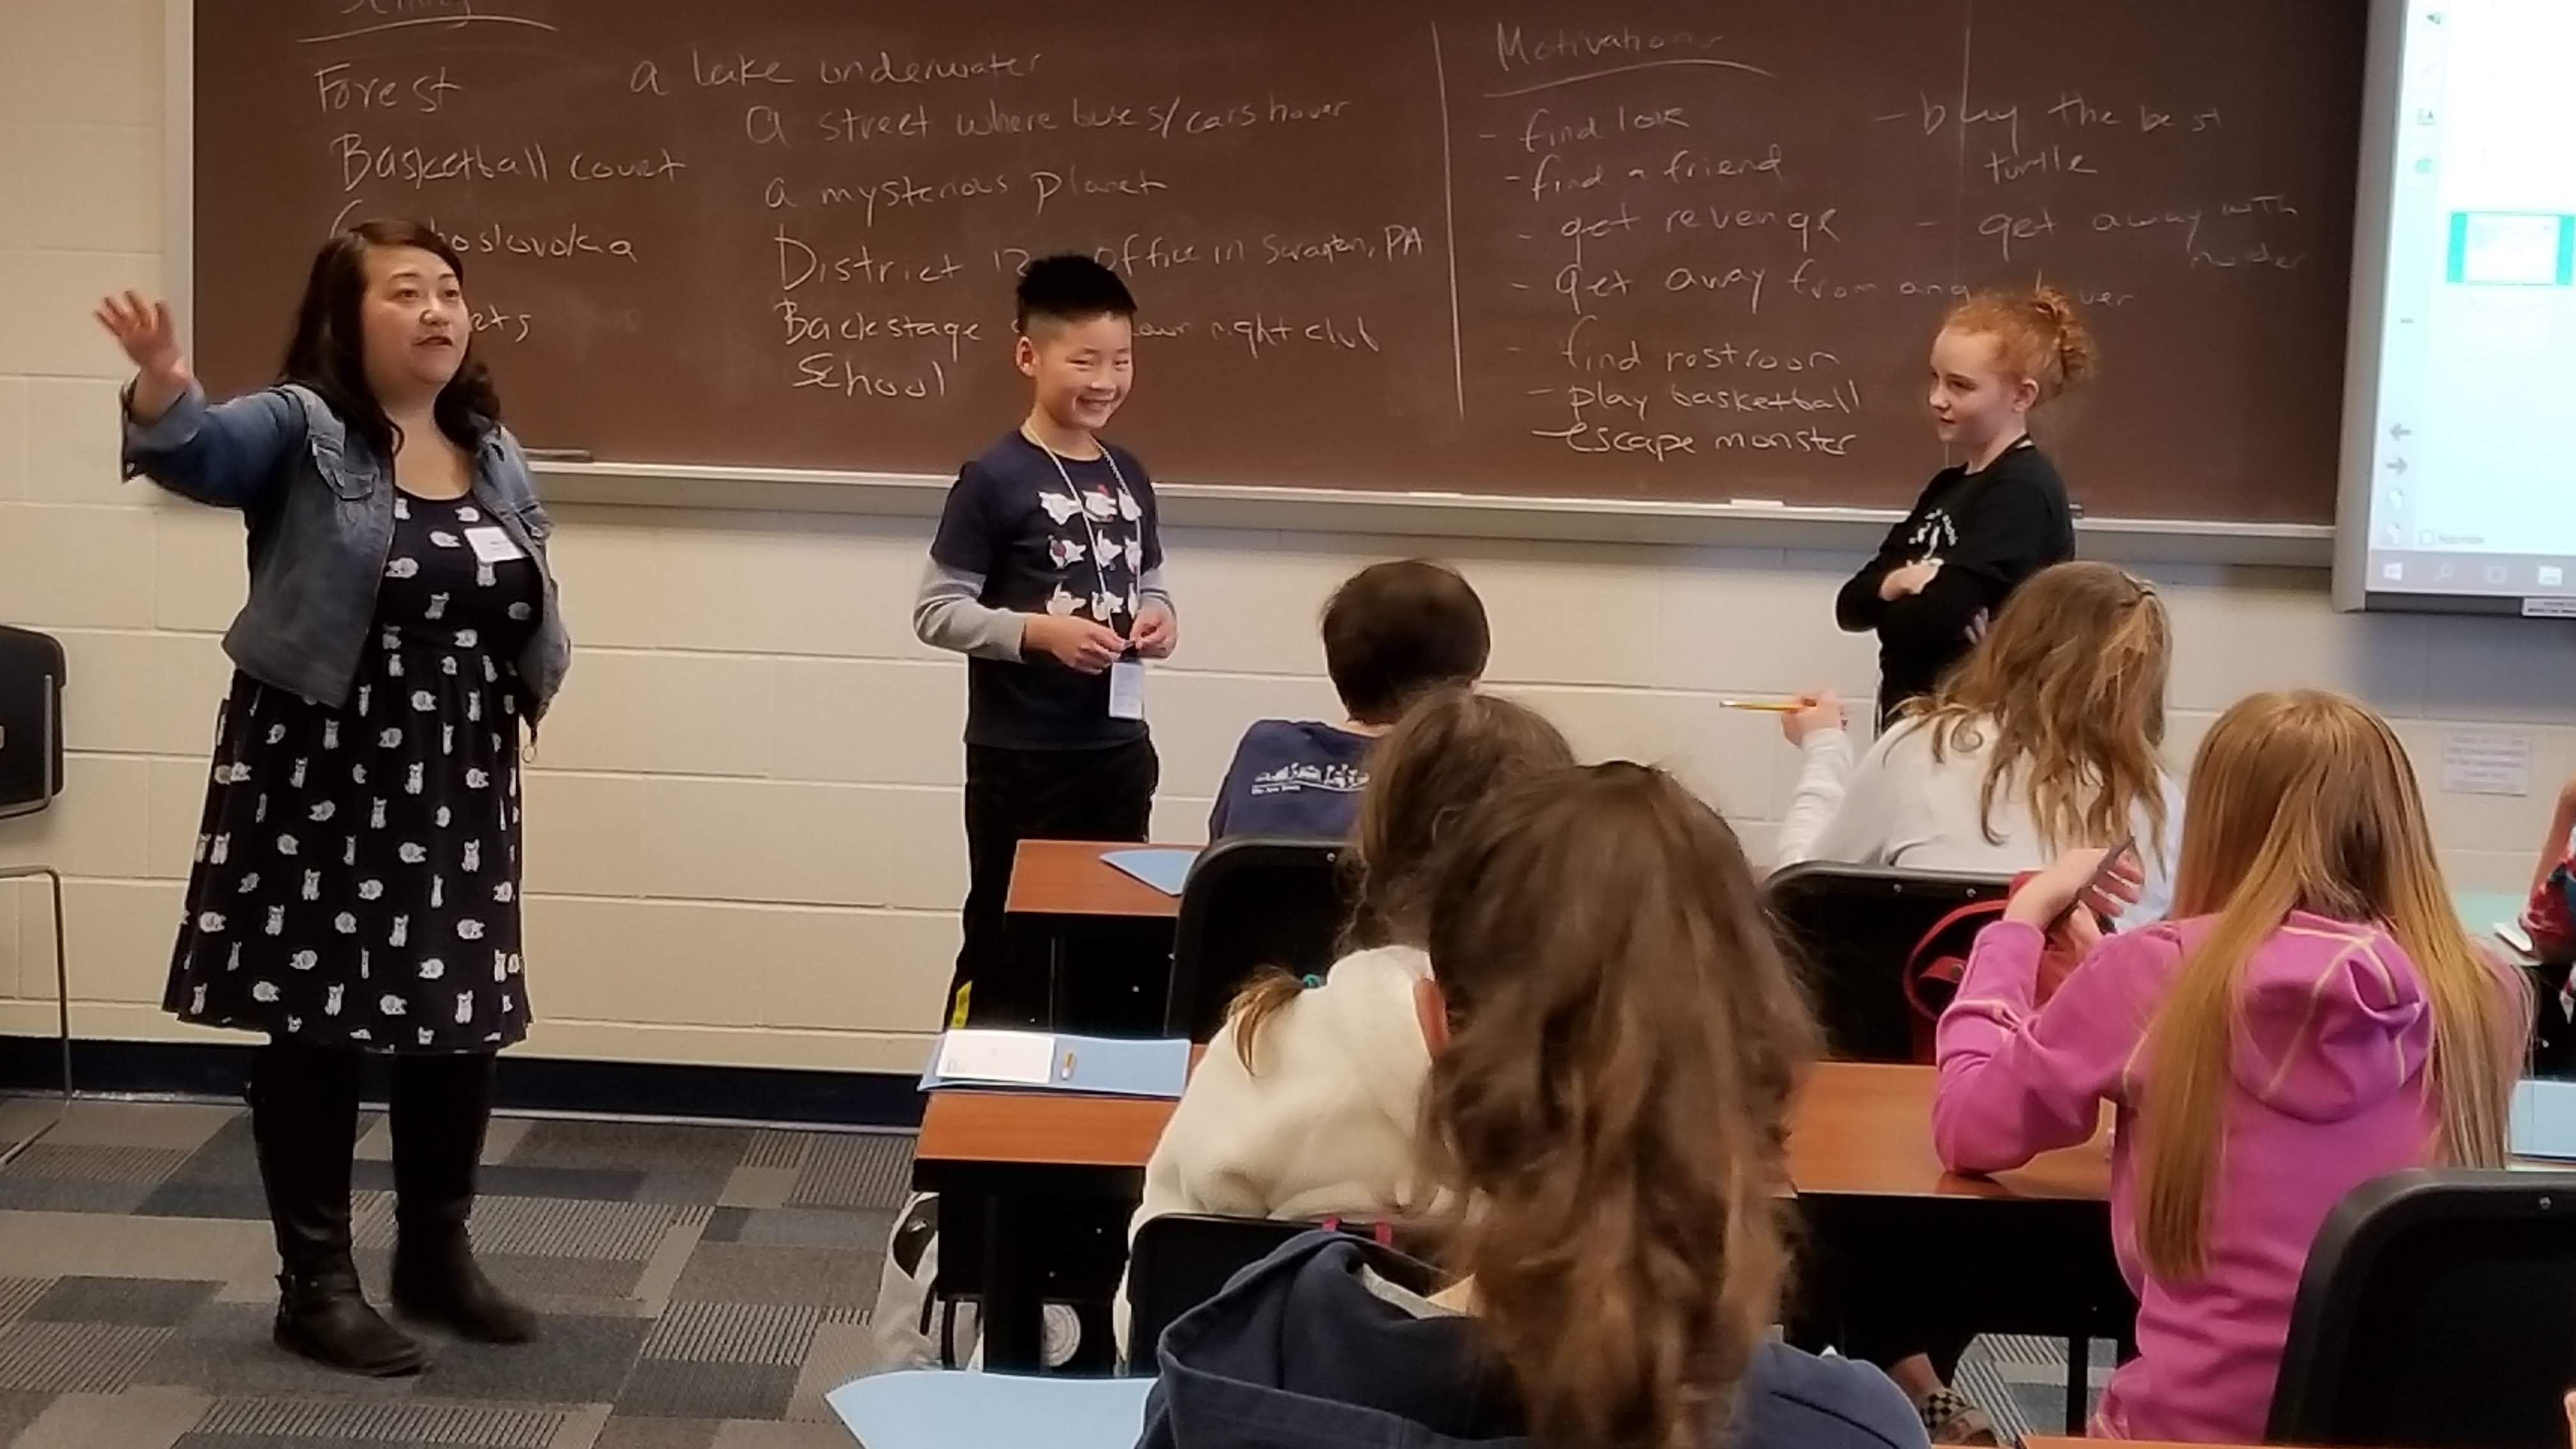 Setting
Forest
Basketball court
a lake underwater
a street where buses/cars hover
a mysterious planet
District 12 Office in Scranton, PA
Backstage night club
School
Motivations
- find love
- find a friend
- get revenge
- get away from
- find restroom
- play basketball
- escape monster
- buy the best
turtle
- get away with